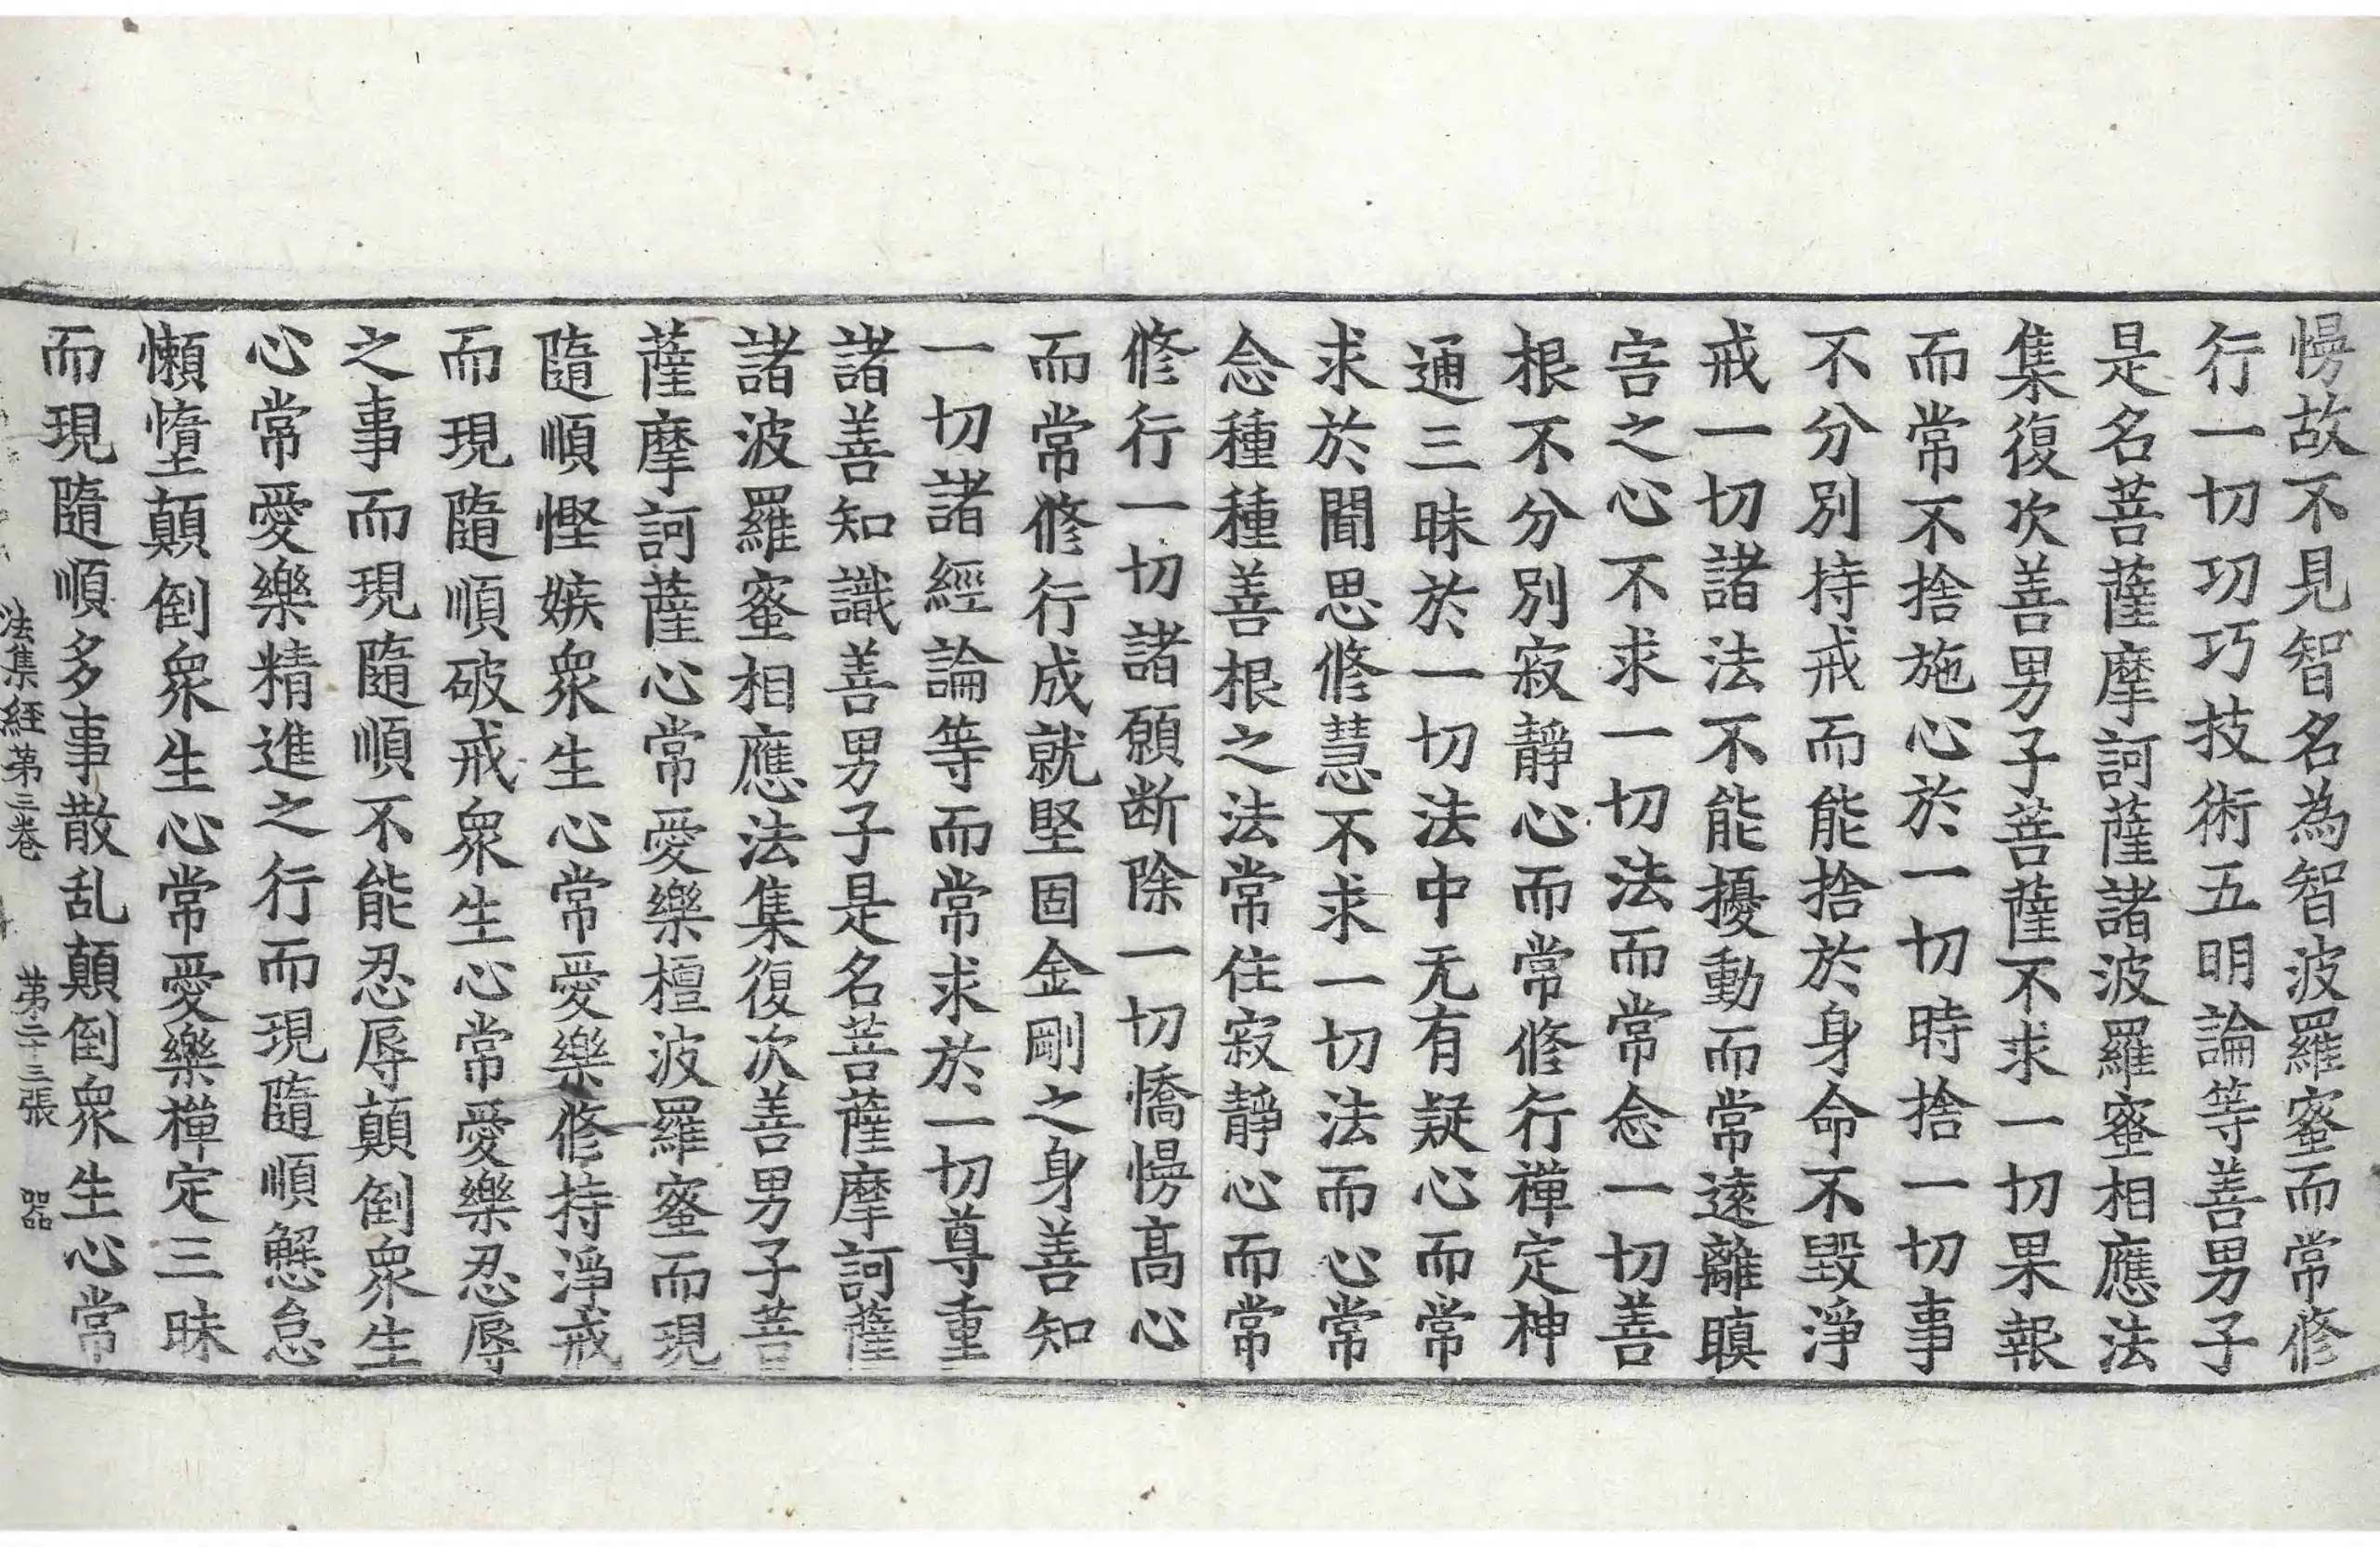 慢故不見智名為智波羅蜜而常修
行一切功巧技術五明論等善男子
是名菩薩摩訶薩諸波羅蜜相應法
集復次善男子菩薩不求一切果報
而常不捨施心於一切時捨一切事
不分別持戒而能捨於身命不毀淨
戒一切諸法不能擾動而常遠離瞋
害之心不求一切法而常念一切善
根不分別寂靜心而常修行禪定神
通三昧於一切法中无有疑心而常
求於聞思修慧不求一切法而心常
念種種善根之法常住寂靜心而常
修行一切諸願断除一切憍慢高心
而常修行成就堅固金剛之身善知
一切諸經論等而常求於一切尊重
諸善知識善男子是名菩薩摩訶薩
諸波羅蜜相應法集復次善男子菩
薩摩訶薩心常愛樂檀波羅蜜而現
隨順慳嫉衆生心常愛樂修持淨戒
而現隨順破戒衆生心常愛樂忍辱
之事而現隨順不能忍辱顛倒衆生
心常愛樂精進之行而現隨順懈怠
懶墮顛倒衆生心常愛樂禪定三昧
而現隨順多事散乱顛倒衆生心常
法集經第三卷 第二十三張 器